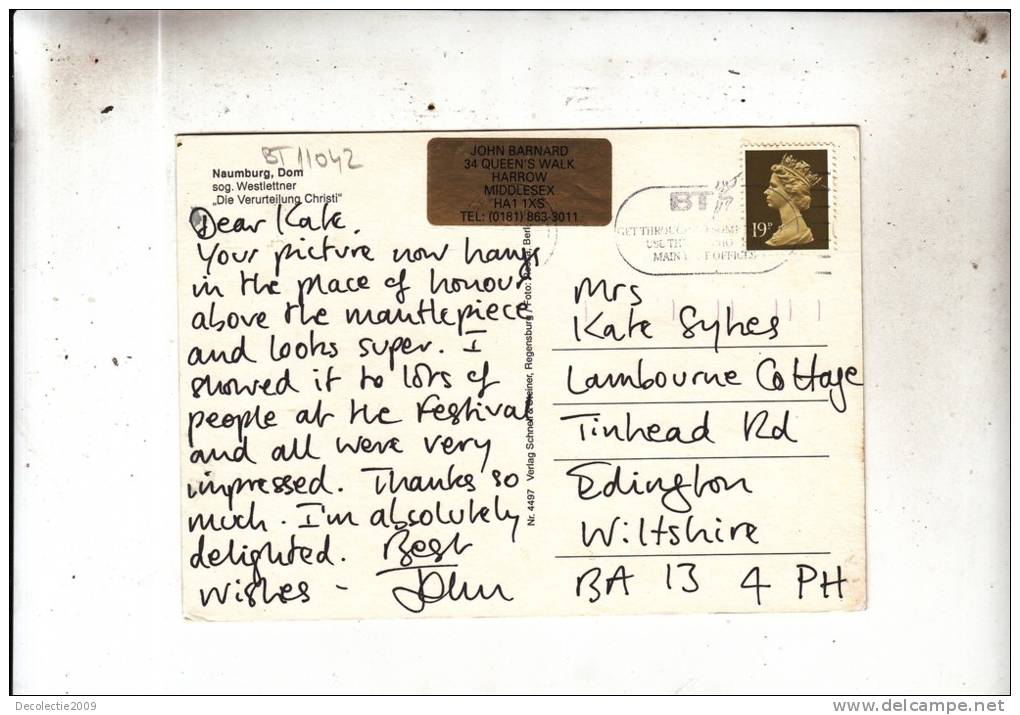 BT 11042
Naumburg, Dom
sog. Westlettner
„Die Verurteilung Christi"
JOHN BARNARD
34 QUEEN'S WALK
HARROW
MIDDLESEX
HA1 1XS
TEL: (0181) 863-3011
BT
GET THROUGH
MAIN
19P
Dear Kate,
Your picture now hangs
in the place of honour
above the mantlepiece
and looks super. I
showed it to lots of
people at the Festival
and all were very
impressed. Thanks so
much. I'm absolutely
delighted. Best
wishes -
John
Nr. 4497 Verlag Schnell & Steiner, Regensburg / Foto:
Mrs
Kate Sykes
Lambourne Cottage
Tinhead Rd
Edington
Wiltshire
BA 13 4 PH
Decolectie2009
delcampe.net